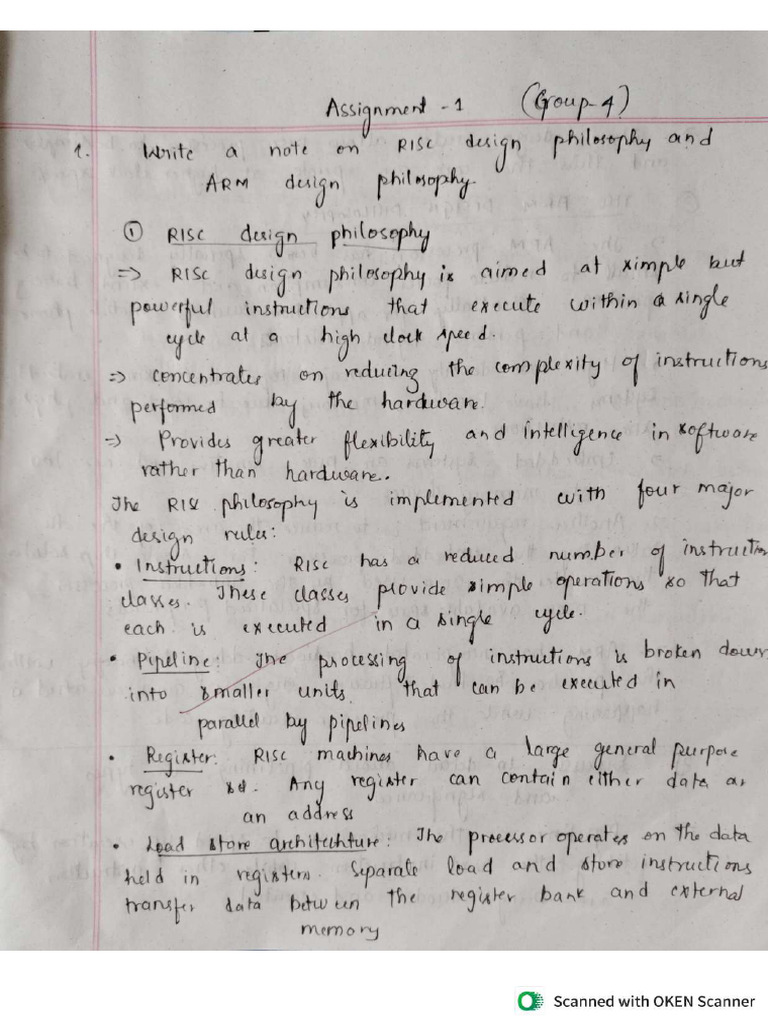 Assignment - 1 (Group-4)
1. Write a note on RISC design philosophy and
ARM design philosophy.
① RISC design philosophy
=> RISC design philosophy is aimed at simple but
powerful instructions that execute within a single
cycle at a high clock speed.
=> concentrates on reducing the complexity of instructions
performed by the hardware.
=> Provides greater flexibility and intelligence in software
rather than hardware.
The RISC philosophy is implemented with four major
design rules:
• Instructions: RISC has a reduced number of instruction
classes. These classes provide simple operations so that
each is executed in a single cycle.
• Pipeline: The processing of instructions is broken down
into smaller units that can be executed in
parallel by pipelines
• Register: RISC machines have a large general purpose
register set. Any register can contain either data or
an address
• Load store architechture: The processor operates on the data
held in registers. Separate load and store instructions
transfer data between the register bank and external
memory
Scanned with OKEN Scanner